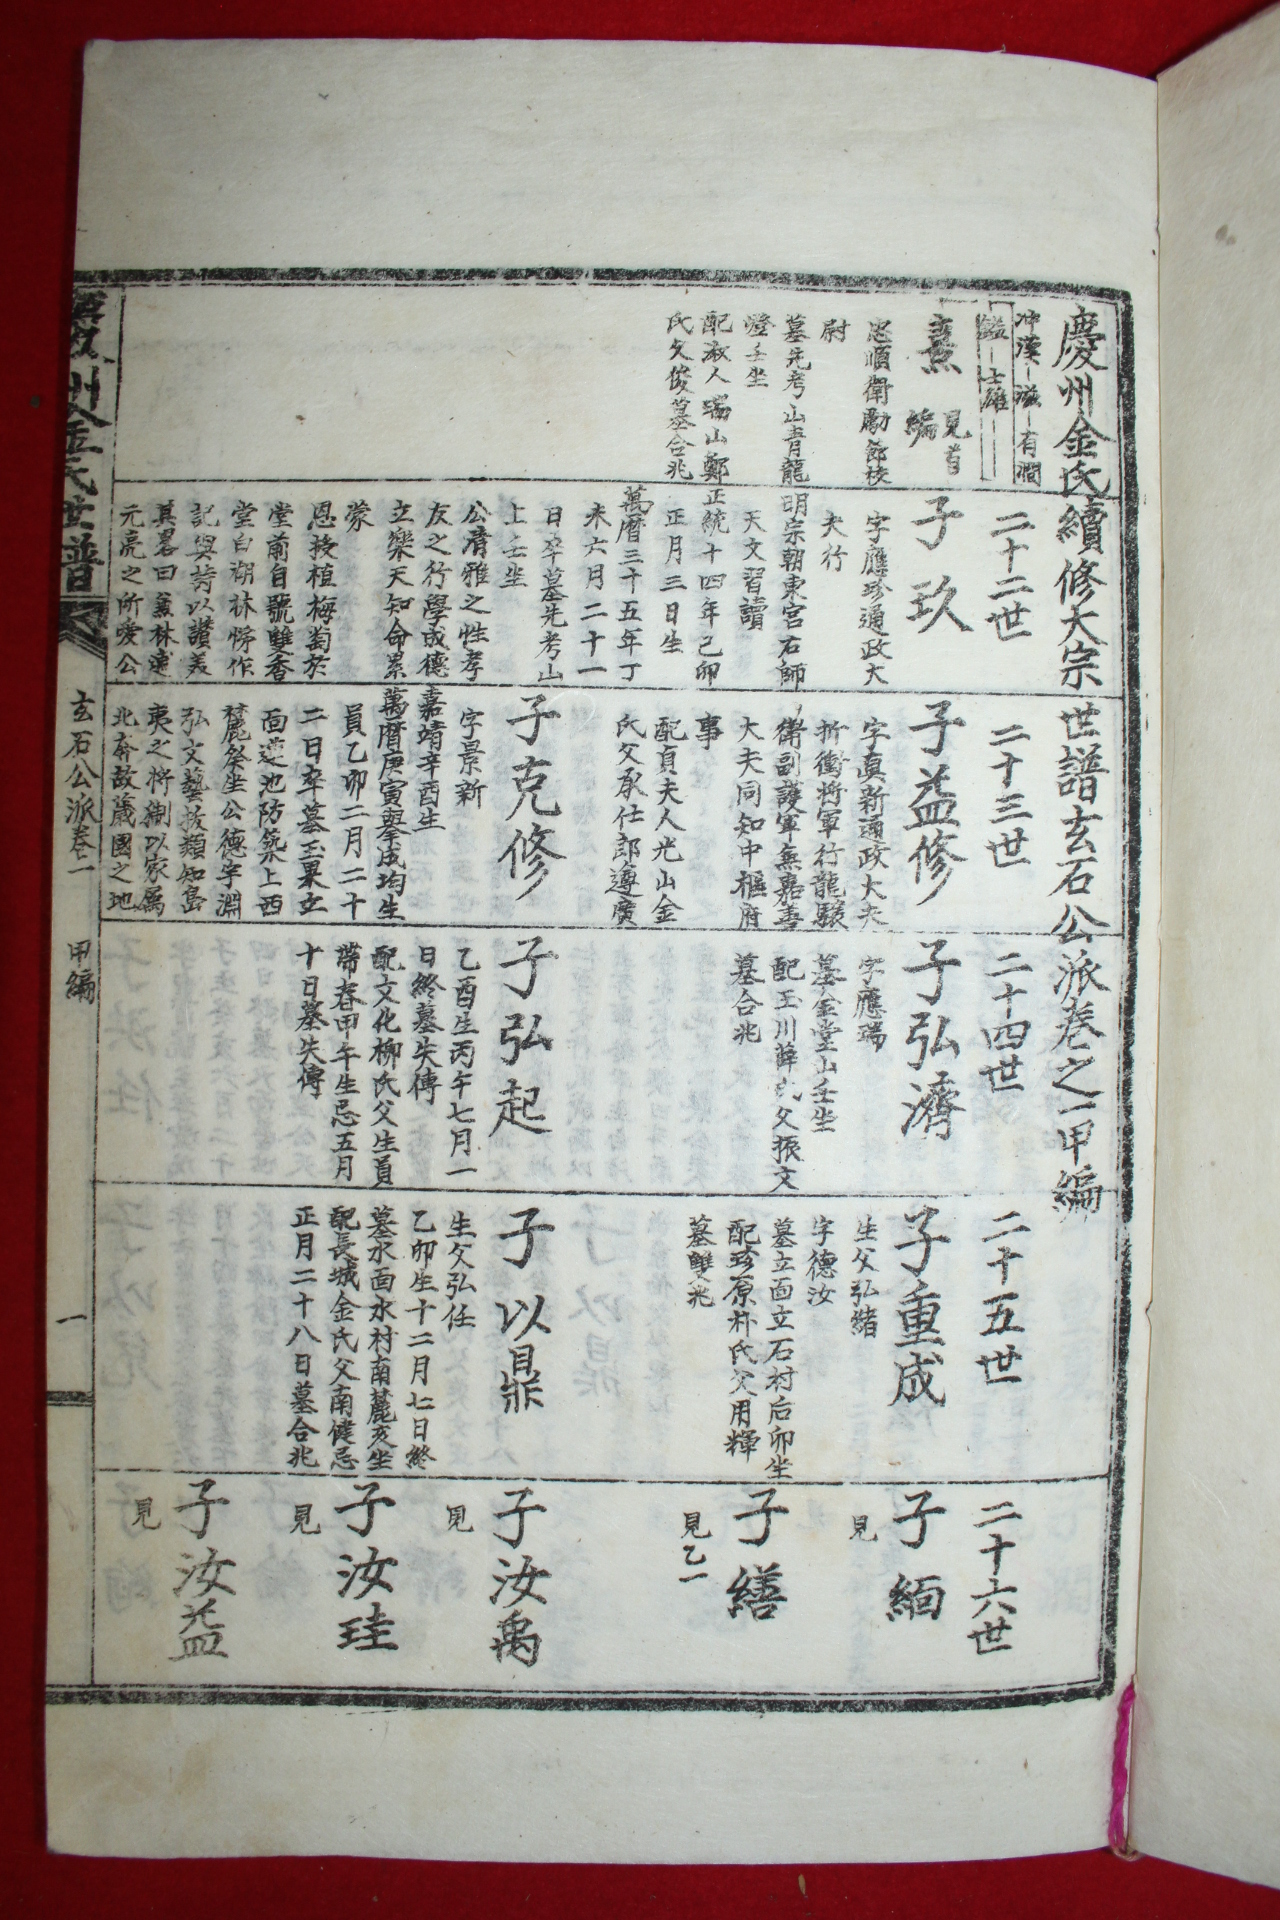 慶州金氏續修大宗世譜玄石公派卷之一甲編
冲漢－滋－有澗
鎰－士雄－
熹
見首
編
忠順衛勵節校
尉
墓先考山青龍
燈壬坐
配淑人瑞山鄭
氏父俊墓合兆
二十二世
子玖
字應珍通政大
夫行
明宗朝東宮右師
天文習讀
正統十四年己卯
正月三日生
萬曆三十五年丁
未六月二十一
日卒墓先考山
上壬坐
公清雅之性孝
友之行學成德
立樂天知命累
蒙
恩授植梅萄於
堂前自號雙香
堂白湖林悌作
記與詩以讚美
其畧曰蓋林逋
元亮之所愛公
二十三世
子益修
字眞新通政大夫
折衝將軍行龍驤
衛副護軍無嘉善
大夫同知中樞府
事
配貞夫人光山金
氏父承仕郎遵廣
子克修
字景新
嘉靖辛酉生
萬曆庚寅擧成均生
員乙卯二月二十
二日卒墓玉果立
面蓮池防築上西
麓癸坐公德宇淵
弘文藝拔類知島
夷之將猘以家屬
北奔故蔵國之地
二十四世
子弘濟
字應瑞
墓金堂山壬坐
配玉川薛氏父振文
墓合兆
子弘起
乙酉生丙午七月一
日終墓失傳
配文化柳氏父生員
帶春甲午生忌五月
十日墓失傳
二十五世
子重成
生父弘緒
字德汝
墓立面立石村后卯坐
配珍原朴氏父用輝
墓雙兆
子以鼎
生父弘任
乙卯生十二月七日終
墓水面水村南麓亥坐
配長城金氏父南健忌
正月二十八日墓合兆
二十六世
子緬
見
子繕
見乙一
子汝禹
見
子汝珪
見
子汝益
見
慶州金氏世譜
玄石公派卷二 甲編
一